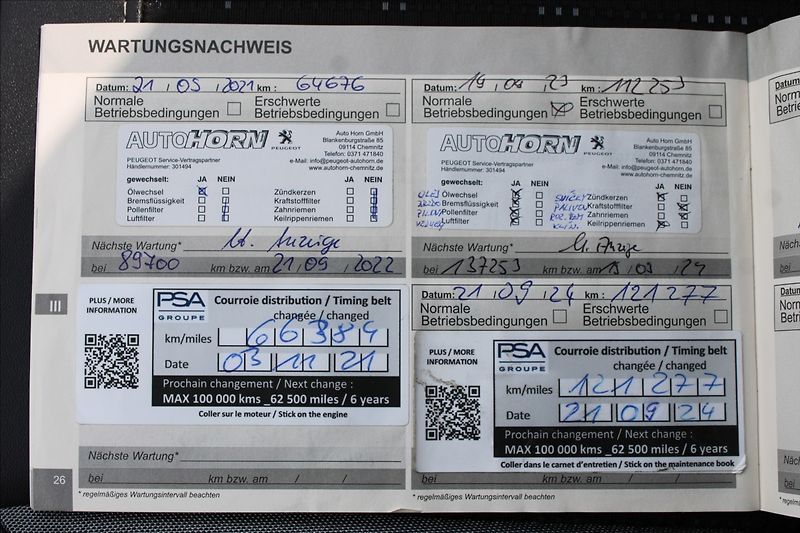 WARTUNGSNACHWEIS
Datum: 21 / 05 / 2021 km : 64676
Normale Betriebsbedingungen
Erschwerte Betriebsbedingungen
AUTOHORN
PEUGEOT
PEUGEOT Service-Vertragspartner
Händlernummer: 301494
Auto Horn GmbH
Blankenburgstraße 85
09114 Chemnitz
Telefon: 0371 471840
e-Mail: info@peugeot-autohorn.de
www.autohorn-chemnitz.de
gewechselt: JA NEIN JA NEIN
Ölwechsel Zündkerzen
Bremsflüssigkeit Kraftstofffilter
Pollenfilter Zahnriemen
Luftfilter Keilrippenriemen
Nächste Wartung* lt. Anzeige
bei 89700 km bzw. am 21 / 09 / 2022
PLUS / MORE
INFORMATION
PSA
GROUPE
Courroie distribution / Timing belt
changée / changed
km/miles 66384
Date 03 11 21
Prochain changement / Next change :
MAX 100 000 kms _62 500 miles / 6 years
Coller sur le moteur / Stick on the engine
Nächste Wartung*
bei km bzw. am / /
* regelmäßiges Wartungsintervall beachten
26
III
Datum: 19 / 09 / 23 km : 112253
Normale Betriebsbedingungen
Erschwerte Betriebsbedingungen
AUTOHORN
PEUGEOT
PEUGEOT Service-Vertragspartner
Händlernummer: 301494
Auto Horn GmbH
Blankenburgstraße 85
09114 Chemnitz
Telefon: 0371 471840
e-Mail: info@peugeot-autohorn.de
www.autohorn-chemnitz.de
gewechselt: JA NEIN JA NEIN
Ölwechsel Zündkerzen
Bremsflüssigkeit Kraftstofffilter
Pollenfilter Zahnriemen
Luftfilter Keilrippenriemen
Nächste Wartung* lt. Anzeige
bei 137253 km bzw. am 19 / 09 / 24
Datum: 21 / 09 / 24 km : 121277
Normale Betriebsbedingungen
Erschwerte Betriebsbedingungen
PLUS / MORE
INFORMATION
PSA
GROUPE
Courroie distribution / Timing belt
changée / changed
km/miles 121277
Date 21 09 24
Prochain changement / Next change :
MAX 100 000 kms _62 500 miles / 6 years
Coller dans le carnet d'entretien / Stick on the maintenance book
bei km bzw. am / /
* regelmäßiges Wartungsintervall beachten